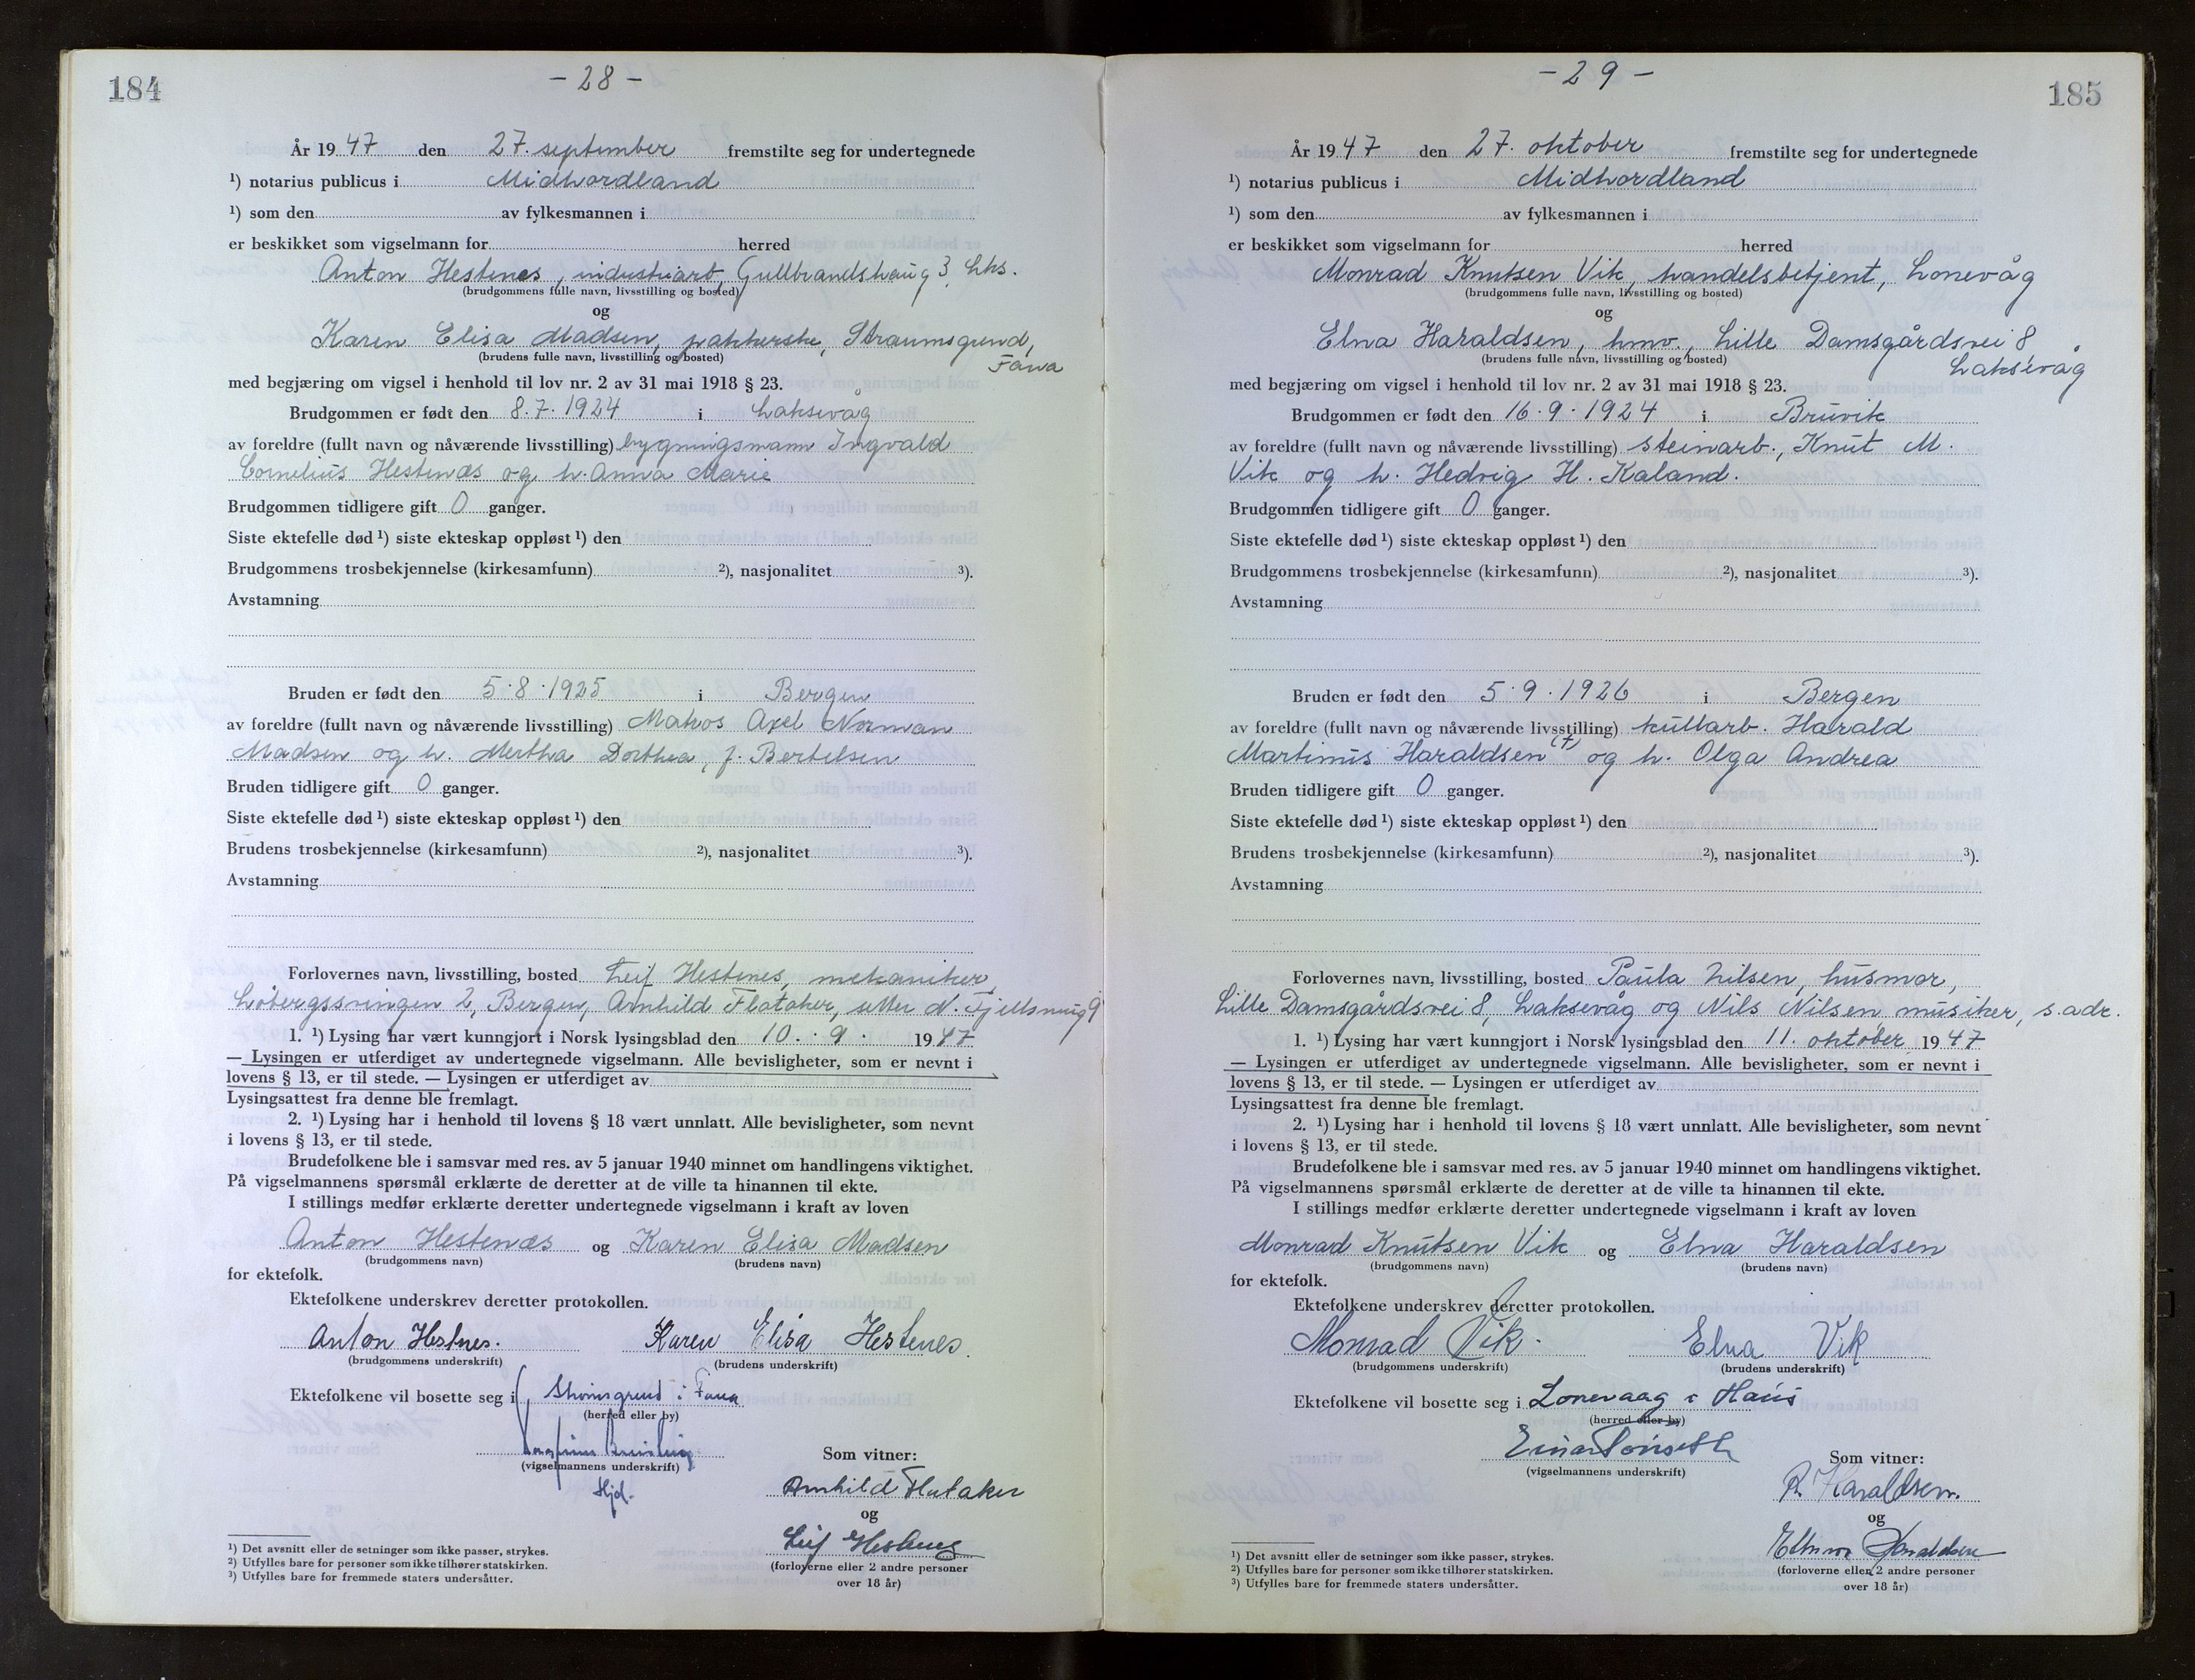 184
- 28 -
År 19 47 den 27. september fremstilte seg for undertegnede
¹) notarius publicus i Midhordland
¹) som den av fylkesmannen i
er beskikket som vigselmann for herred
Anton Hestenes, industriarb, Gullbrandshaug 3, Lks.
(brudgommens fulle navn, livsstilling og bosted)
og
Karen Elisa Madsen, pakkerske, Straumsgrund,
Fana
(brudens fulle navn, livsstilling og bosted)
med begjæring om vigsel i henhold til lov nr. 2 av 31 mai 1918 § 23.
Brudgommen er født den 8.7.1924 i Laksevåg
av foreldre (fullt navn og nåværende livsstilling) bygningsmann Ingvald
Cornelius Hestenæs og h. Anna Marie
Brudgommen tidligere gift 0 ganger.
Siste ektefelle død ¹) siste ekteskap oppløst ¹) den
Brudgommens trosbekjennelse (kirkesamfunn) ²), nasjonalitet ³).
Avstamning
Bruden er født den 5.8.1925 i Bergen
av foreldre (fullt navn og nåværende livsstilling) Axel Norman
Madsen og h. Dorthea, f. Bertelsen
Bruden tidligere gift 0 ganger.
Siste ektefelle død ¹) siste ekteskap oppløst ¹) den
Brudens trosbekjennelse (kirkesamfunn) ²), nasjonalitet ³).
Avstamning
Forlovernes navn, livsstilling, bosted Leif Hestenes, mekaniker,
Løbergssvingen 2, Bergen, Arnhild Flataker,
1. ¹) Lysing har vært kunngjort i Norsk lysingsblad den 10. 9. 19 47
— Lysingen er utferdiget av undertegnede vigselmann. Alle bevisligheter, som er nevnt i
lovens § 13, er til stede. — Lysingen er utferdiget av
Lysingsattest fra denne ble fremlagt.
2. ¹) Lysing har i henhold til lovens § 18 vært unnlatt. Alle bevisligheter, som nevnt
i lovens § 13, er til stede.
Brudefolkene ble i samsvar med res. av 5 januar 1940 minnet om handlingens viktighet.
På vigselmannens spørsmål erklærte de deretter at de ville ta hinannen til ekte.
I stillings medfør erklærte deretter undertegnede vigselmann i kraft av loven
Anton Hestenæs og Karen Elisa Madsen
(brudgommens navn) (brudens navn)
for ektefolk.
Ektefolkene underskrev deretter protokollen.
Anton Hestnes. Karen Elisa Hestenes.
(brudgommens underskrift) (brudens underskrift)
Ektefolkene vil bosette seg i Straumsgrund i Fana
(herred eller by)
(vigselmannens underskrift)
Hjd.
Som vitner:
Arnhild Flataker
og
Leif Hestenes
(forloverne eller 2 andre personer
over 18 år)
¹) Det avsnitt eller de setninger som ikke passer, strykes.
²) Utfylles bare for personer som ikke tilhører statskirken.
³) Utfylles bare for fremmede staters undersåtter.
185
- 29 -
År 19 47 den 27. oktober fremstilte seg for undertegnede
¹) notarius publicus i Midhordland
¹) som den av fylkesmannen i
er beskikket som vigselmann for herred
Monrad Knutsen Vik, handelsbetjent, Lonevåg
(brudgommens fulle navn, livsstilling og bosted)
og
Elna Haraldsen, hmv., Lille Damsgårdsvei 8
Laksevåg
(brudens fulle navn, livsstilling og bosted)
med begjæring om vigsel i henhold til lov nr. 2 av 31 mai 1918 § 23.
Brudgommen er født den 16.9.1924 i Bruvik
av foreldre (fullt navn og nåværende livsstilling) steinarb., Knut M.
Vik og h. Hedvig H. Kaland.
Brudgommen tidligere gift 0 ganger.
Siste ektefelle død ¹) siste ekteskap oppløst ¹) den
Brudgommens trosbekjennelse (kirkesamfunn) ²), nasjonalitet ³).
Avstamning
Bruden er født den 5.9.1926 i Bergen
av foreldre (fullt navn og nåværende livsstilling) kullarb. Harald
Martinus Haraldsen (†) og h. Olga Andrea
Bruden tidligere gift 0 ganger.
Siste ektefelle død ¹) siste ekteskap oppløst ¹) den
Brudens trosbekjennelse (kirkesamfunn) ²), nasjonalitet ³).
Avstamning
Forlovernes navn, livsstilling, bosted Paula Nilsen, husmor,
Lille Damsgårdsvei 8, Laksevåg og Nils Nilsen musiker, s. adr.
1. ¹) Lysing har vært kunngjort i Norsk lysingsblad den 11. oktober 19 47
— Lysingen er utferdiget av undertegnede vigselmann. Alle bevisligheter, som er nevnt i
lovens § 13, er til stede. — Lysingen er utferdiget av
Lysingsattest fra denne ble fremlagt.
2. ¹) Lysing har i henhold til lovens § 18 vært unnlatt. Alle bevisligheter, som nevnt
i lovens § 13, er til stede.
Brudefolkene ble i samsvar med res. av 5 januar 1940 minnet om handlingens viktighet.
På vigselmannens spørsmål erklærte de deretter at de ville ta hinannen til ekte.
I stillings medfør erklærte deretter undertegnede vigselmann i kraft av loven
Monrad Knutsen Vik og Elna Haraldsen
(brudgommens navn) (brudens navn)
for ektefolk.
Ektefolkene underskrev deretter protokollen.
Monrad Vik. Elna Vik
(brudgommens underskrift) (brudens underskrift)
Ektefolkene vil bosette seg i Lonevaag i Haus
(herred eller by)
Einar Tønseth
(vigselmannens underskrift)
Som vitner:
R. Haraldsen.
og
Haraldsen
(forloverne eller 2 andre personer
over 18 år)
¹) Det avsnitt eller de setninger som ikke passer, strykes.
²) Utfylles bare for personer som ikke tilhører statskirken.
³) Utfylles bare for fremmede staters undersåtter.